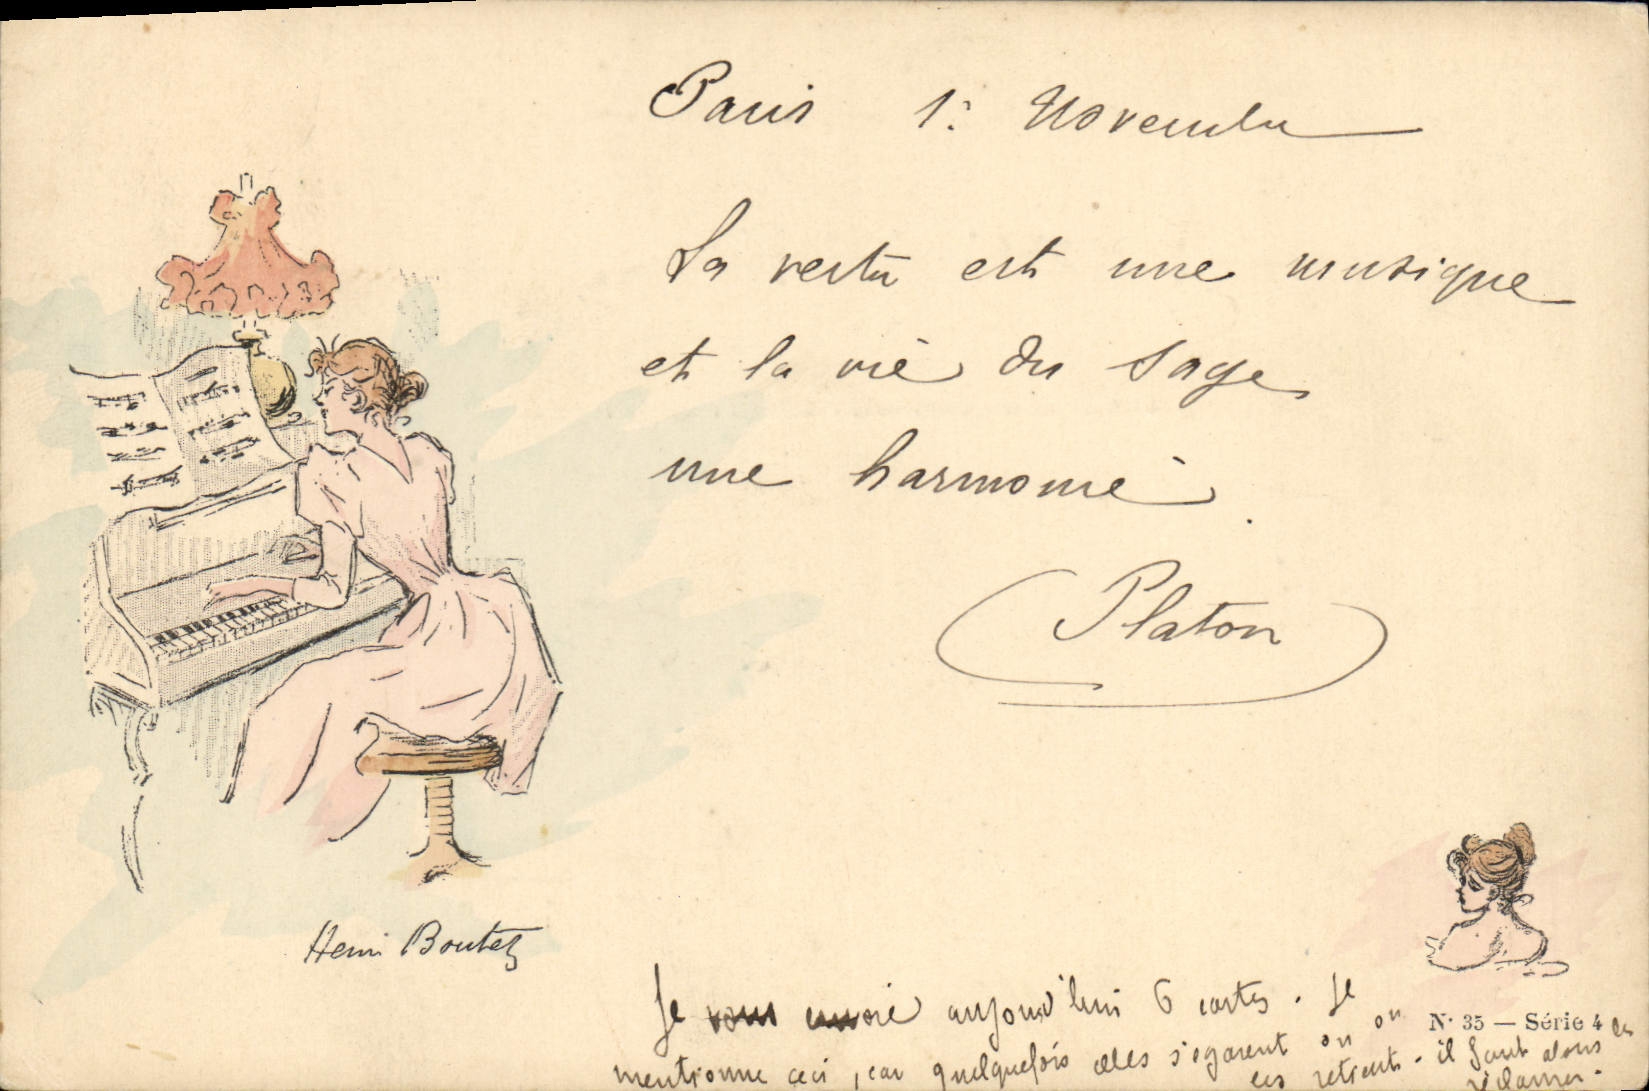 Paris 1: Novembre
La vertu est une musique
et la vie du sage
une harmonie.
Platon
Henri Boutet
Je vous envoie aujourd'hui 6 cartes. Je
N° 35 — Série 4
mentionne ceci, car quelquefois elles s'égarent ou on
les retient. il faut alors les
réclamer.